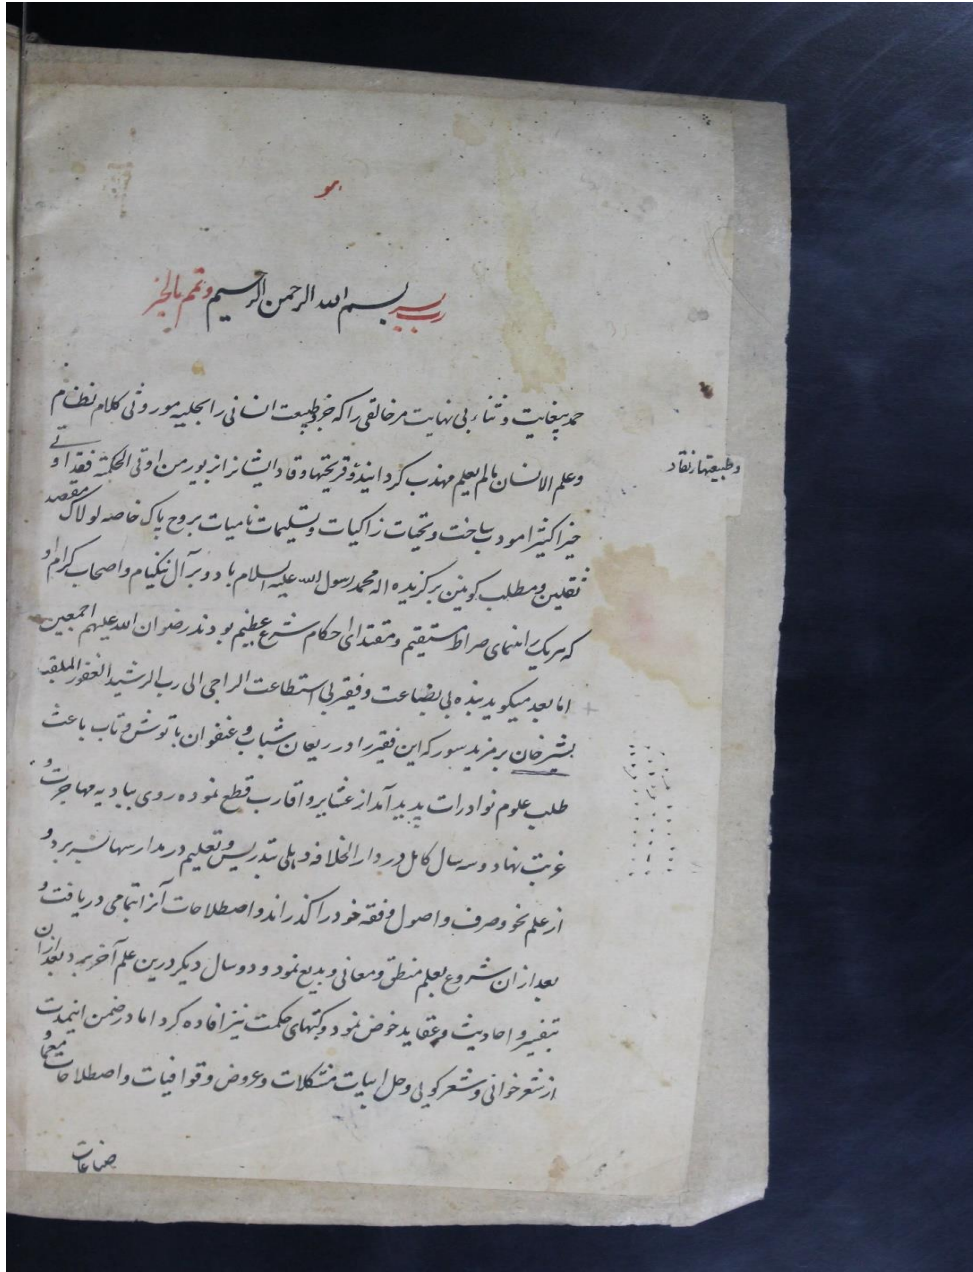 هو
رب یسر بسم الله الرحمن الرحیم وتمم بالخیر
حمد بیغایت و ثناء بی نهایت مر خالقی را که طبیعت انسانی را بحلیه موزونی کلام نظام
وعلم الانسان مالم یعلم مهذب کردانید و قریحتها وقاد ایشانرا بزیور من اوتی الحکمة فقد اوتی
وطبیعتها نقاد
خیرا کثیرا ساخت وتحیات زاکیات وتسلیمات نامیات بر روح پاک خاصه لولاک مقصد
ثقلین ومطلب کونین برکزیده اله محمد رسول الله علیه السلام باد و بر آل و اصحاب کرام او
که هر یک راهنمای صراط مستقیم ومقتدای احکام شرع عظیم بودند رضوان الله علیهم اجمعین
اما بعد میکوید بنده بی بضاعت وفقیر بی استطاعت الراجی الی رب الرشید الغفور الملقب
خان که این فقیر را در ریعان شباب و عنفوان باعث
طلب علوم پدید آمد از عشایر و اقارب قطع نموده روی ببادیه مهاجرت و
غربت نهاد و سه سال کامل در دار الخلافه دهلی بتدریس وتعلیم در مدارسها بسر برد و
از علم نحو وصرف واصول وفقه خود را کذراند و اصطلاحات آنرا بتمامی دریافت و
بعد از ان شروع بعلم منطق ومعانی وبدیع نمود و دو سال دیکر درین علم آخر برد بعد ازان
بتفسیر و احادیث و عقاید خوض نمود و کتبهای حکمت نیز افاده کرد اما در ضمن اینمدت
از شعر خوانی وشعر کویی وحل ابیات مشکلات وعروض وقوافیات واصطلاحات معما و
صناعات